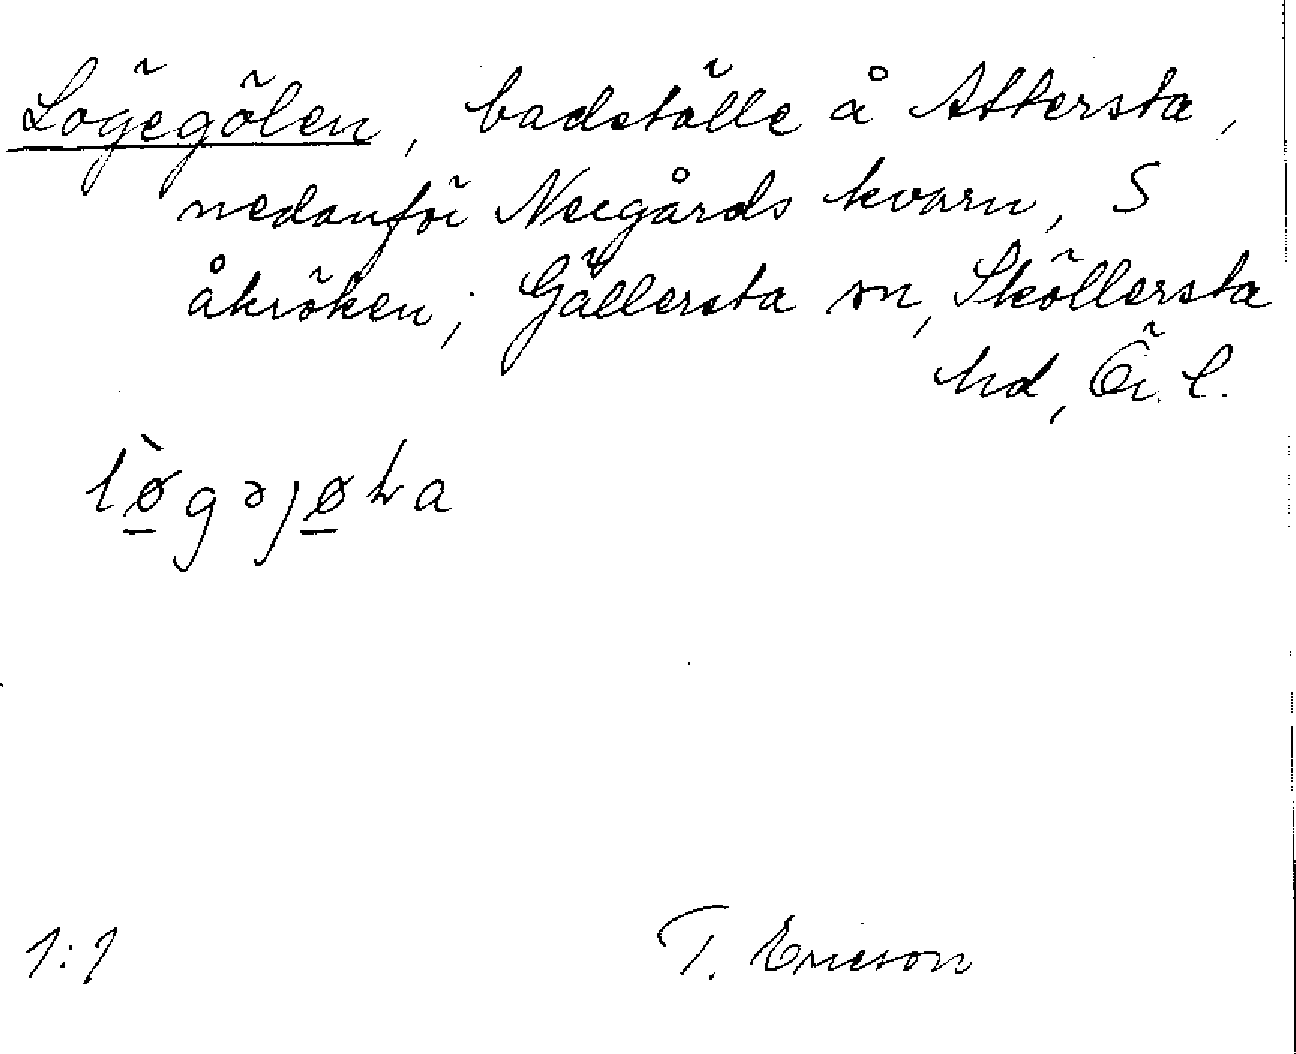 Lögegölen, badställe å Attersta,
nedanför Neegårds kvarn, S
åkröken; Gällersta sn, Sköllersta
hd, Ör. l.
lø̀gəjøɫa
1:1
T. Ericson